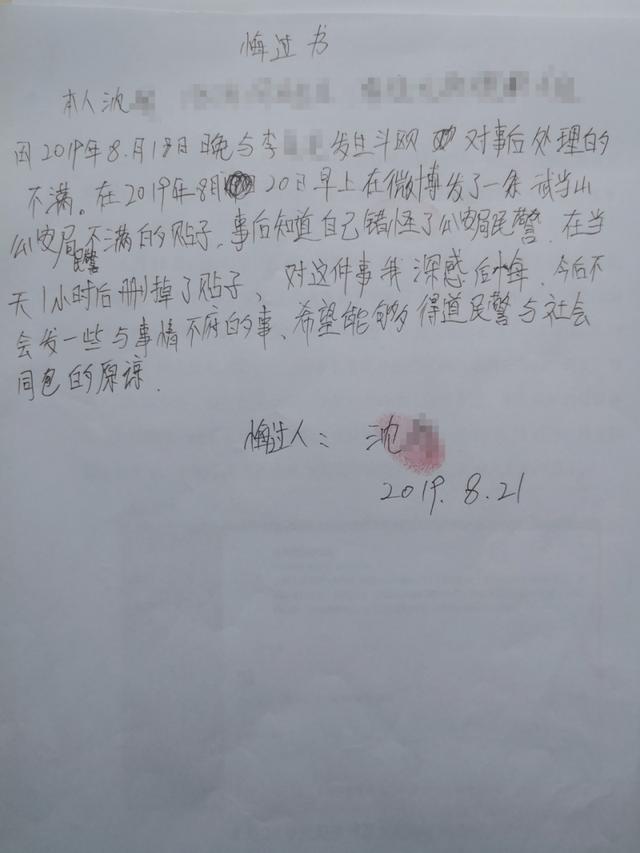 悔过书
本人沈
因2019年8.月18日晚与李 发生斗殴 对事后处理的
不满。在2019年8月 20日早上在微博发了一条 当山
公安局民警不满的贴子、事后知道自己错怪了公安局民警、在当
天1小时后删掉了贴子、 对这件事我深感后悔、今后不
会发一些与事情不府的事、希望能够得道民警与社会
同包的原谅.
悔过人: 沈
2019.8.21